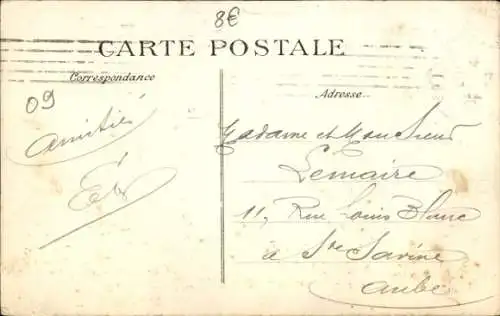 8€
CARTE POSTALE
Correspondance
Adresse.
09
amitié
Madame et Monsieur
Lemaire
11, Rue Louis Blanc
à Ste Savine
Aube